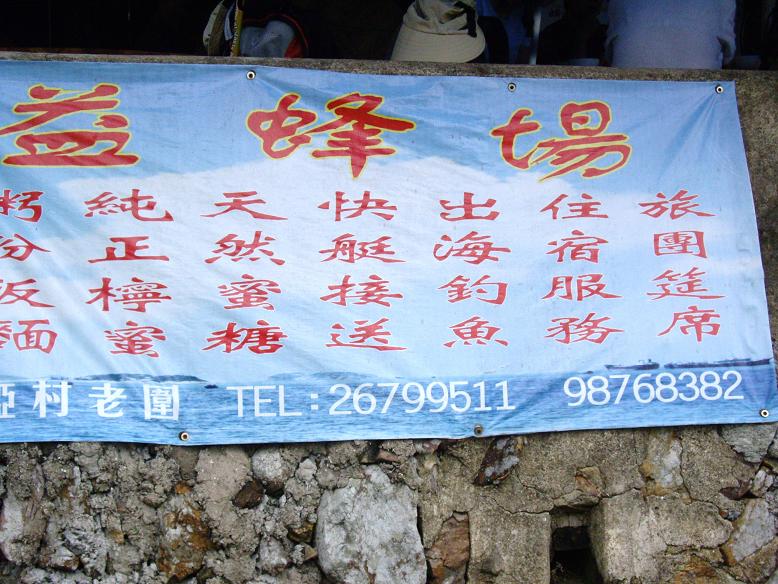 益蜂場
粥粉飯麵
純正檸蜜
天然蜜糖
快艇接送
出海釣魚
住宿服務
旅團筵席
椏村老圍 TEL:26799511 98768382